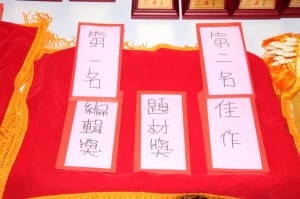 第一名
第二名
編輯獎
題材獎
佳作